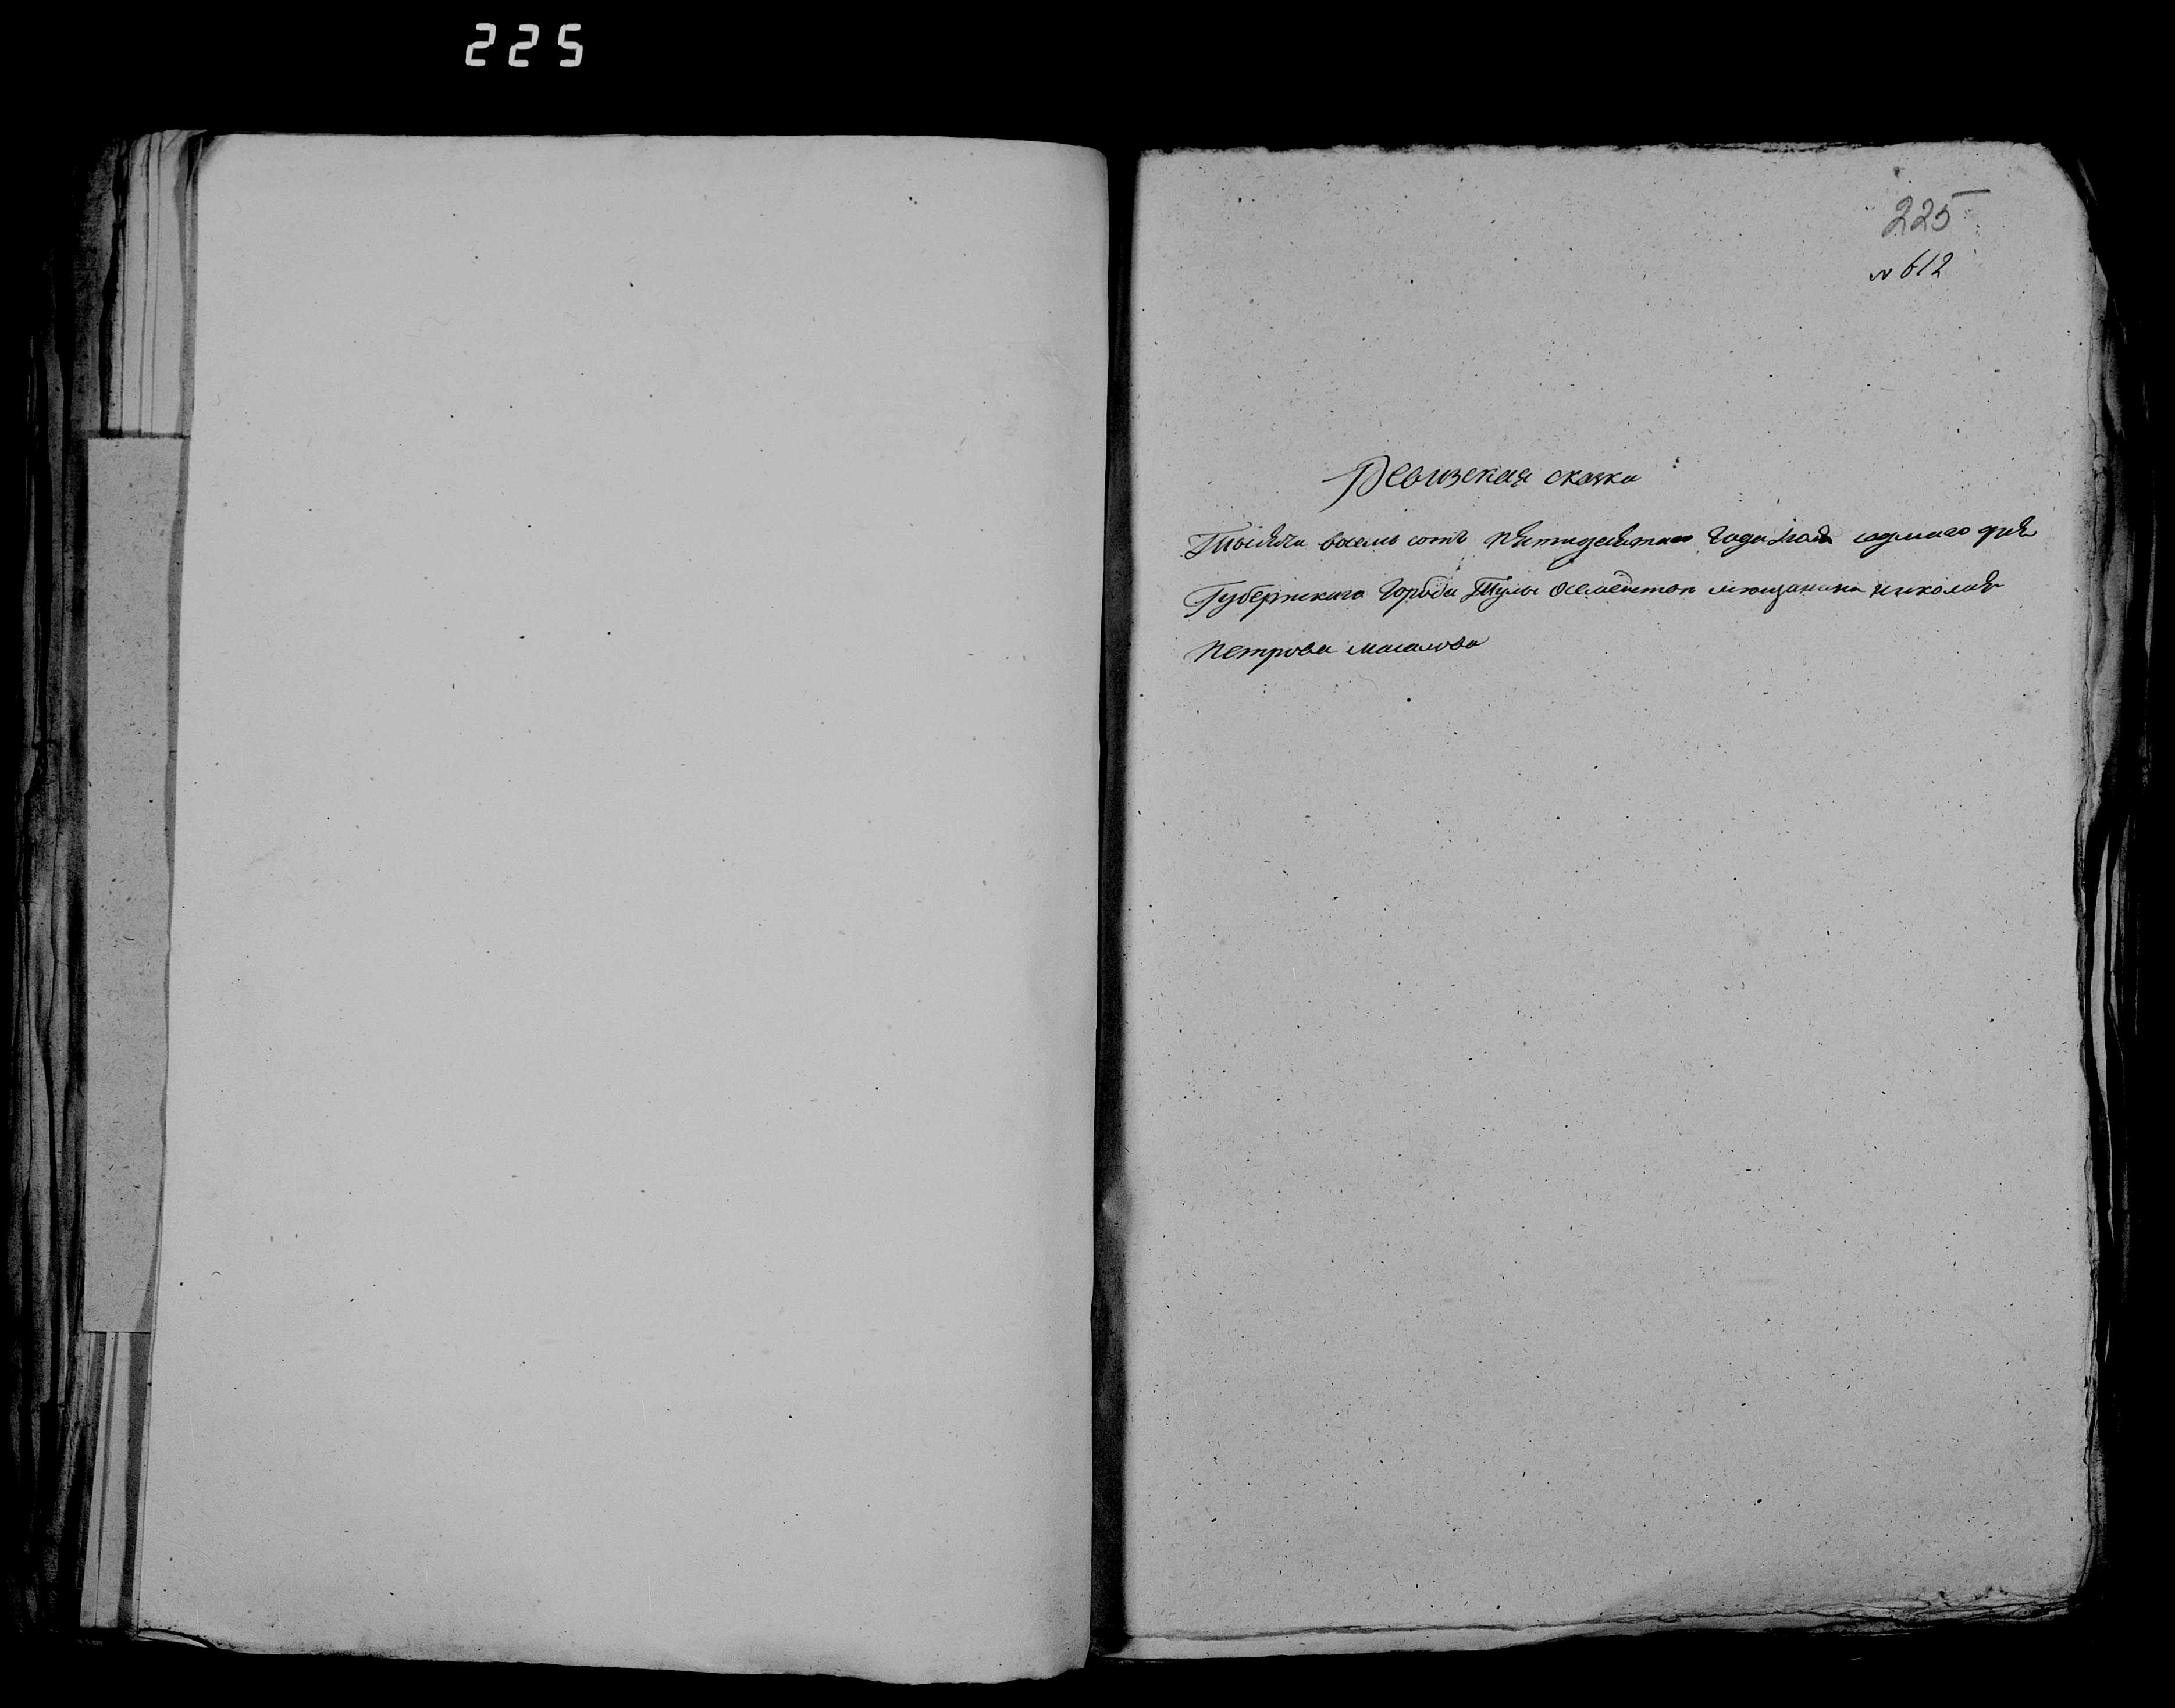 225
225
№ 612
Ревизская сказка
Тысяча восемь сотъ пятидесятаго Года Маія седмаго дня
Губернскаго Города Тулы мющанина николая
Петрова Масалова